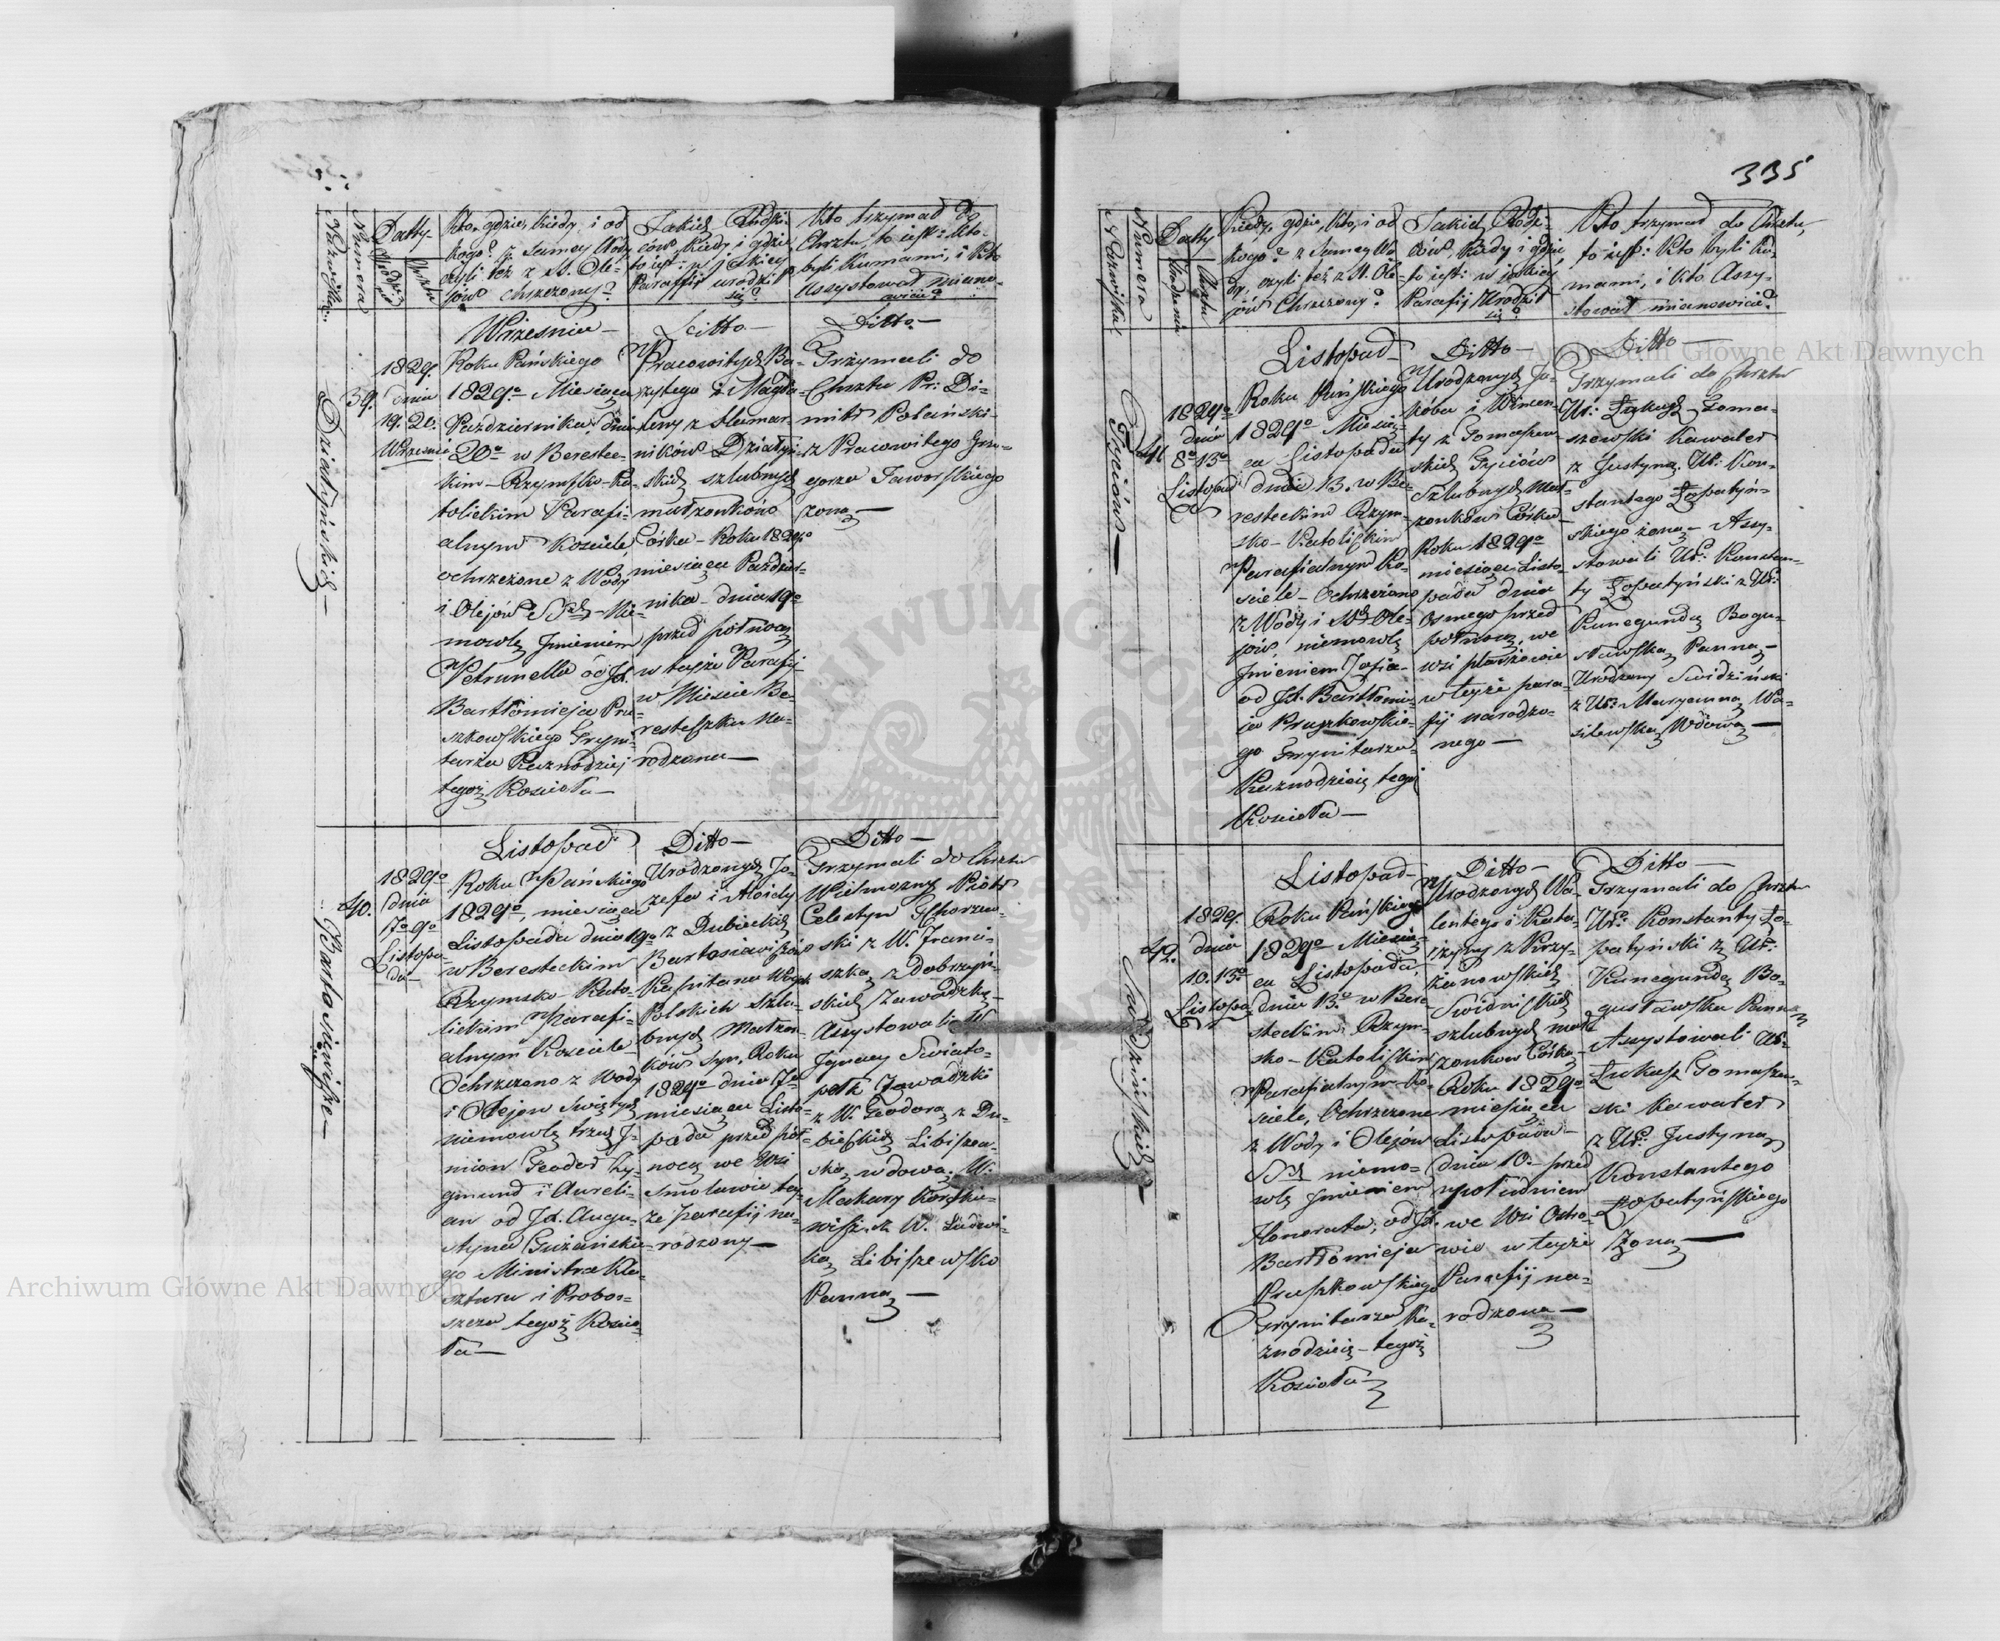 335
Nazwiska
Numera
Datty
Urodzin
Chrztu
Kto, gdzie, kiedy, i od
kogo? z Samey Wody
czyli też z S. Ole-
jów chrzczony?
Jakich Rodzi-
ców, Kiedy i gdzie
to iest: w jakiey
Paraffij urodził
się?
Kto trzymał do
Chrztu, to iest: kto
byli Kumami, i kto
Assystował miano-
wicie?
Września
Ditto
Ditto
Działyńskich
39.
1829.
dnia
19. 20.
Września
Roku Pańskiego
1829o Miesiąca
Października dnia
20o w Berestec-
kim Rzymsko-Ka-
tolickim Parafi-
alnym Kościele,
ochrzczone z Wody
i Olejów SSch Nie-
mowlę Jmieniem
Petrunella od Jd.
Bartłomieja Pru-
szkowskiego Tryni-
tarza Kaznodziej
tegoż Kościoła
Pracowitych Ba-
zylego i Magda-
leny z
ników Działyń-
skich szlubnych
małżonków
Córka Roku 1829o
miesiąca Paździer-
nika dnia 19o
przed północą
w tejże Parafij
w Mieście Be-
resteczku na-
rodzona
Trzymali do
Chrztu Pr: Di-
mitr Polański
z Pracowitego Grze-
gorza Jaworskiego
żoną
Listopad
Ditto
Ditto
Bartasiewisze
40.
1829o
dnia
7o 9o
Listopa-
da
Roku Pańskiego
1829o, miesiąca
Listopada dnia 19o
w Beresteckim
Rzymsko-Kato-
lickim Parafi-
alnym Kościele
Ochrzczono z Wody
i Olejow Swiętych
niemowlę trzech J-
mion Teodor Zy-
gmund i Aureli-
an od Jd. Augu-
styna Guzańskie-
go Ministra Kla-
sztoru i Probo-
szcza tegoż Kościo-
ła
Urodzonych Jo-
zefa i Aloidy
z Dubieckich
Bartasiewiszów
Kapitana Woysk
Polskich Szlu-
bnych Małżon-
ków Syn, Roku
1829o dnia 7o
miesiąca Listo-
pada przed pół-
nocą we Wsi
Smolawie tey-
że parafij na-
rodzony
Trzymali do Chrztu
Wielmożny Piotr
Celestyn
ski z W. Franci-
szką z Dobrzyń-
skich Zawadzką
Assystowali W.
Jgnacy Swiato-
pełk Zawadzki
z W. Teodorą z Du-
bieckich Libiszew-
ską wdową. W.
Makary
z W. Ludwi-
ką Libiszewską
Panną
Nazwiska
Numera
Datty
Urodzin
Chrztu
Kiedy, gdzie, kto, i od
kogo? z Samey Wo-
dy, czyli też z S. Ole-
jów Chrzczony?
Jakich Rodzi-
ców, Kiedy i gdzie,
to iest: w jakiey
Parafij Urodził
się?
Kto trzymał do Chrztu,
to iest: kto byli Ku-
mami, i kto Assy-
stował mianowicie?
Listopad
Ditto
Ditto
41
1829o
dnia
8o 13o
Listopad
Roku Pańskiego
1829o Miesią-
ca Listopada
dnia 13. w Be-
resteckim Rzym-
sko-Katolickim
Parafialnym Ko-
ściele Ochrzczono
z Wody i SSch Ole-
jów, niemowlę
Jmieniem Zofia
od Jd. Bartłomie-
ja Pruszkowskie-
go Trynitarza
Kaznodzieię tegoż
Kościoła
Urodzonych Ja-
kóba i Wincen-
ty z Tomaszew-
skich
Szlubnych Mał-
żonków Córka
Roku 1829o
miesiąca Listo-
pada dnia
Osmego przed
północą, we
wsi
w teyże para-
fij narodzo-
nego
Trzymali do Chrztu
Ur: Łukasz Toma-
szewski Kawaler
z Justyną Ur: Kon-
stantego Łopatyń-
skiego żoną Assy-
stowali Ur: Konstan-
ty Łopatyński z Ur:
Kunegundą Bogu-
sławską Panną
Urodzony Swidziński
z Ur: Maryanną Wa-
silewską Wdową
Listopad
Ditto
Ditto
42.
1829.
dnia
10. 13o
Listopa-
Roku Pańskiego
1829o Miesią-
ca Listopada,
dnia 13o w Bere-
steckim Rzym-
sko-Katolickim
Parafialnym Ko-
ściele, Ochrzczone
z Wody i Olejów
SSch niemo-
wlę Jmieniem
Honorata, od Jd.
Bartłomieja
Pruszkowskiego
Trynitarza Ka-
znodzieię tegoż
Kościoła
Urodzonych Wa-
lentego i Kata-
rzyny z Krzy-
żanowskich
szlubnych mał-
żonkow Córka
Roku 1829o
miesiąca
Listopada
dnia 10. przed
południem,
we Wsi Ostro-
wie w teyże
Parafij na-
rodzona
Trzymali do Chrztu
Ur: Konstanty Ło-
patyński z Ur:
Kunegundą Bo-
gusławską Panną
Assystowali Ur:
Łukasz Tomaszew-
ski Kawaler
z Ur: Justyną
Konstantego
Łopatyńskiego
Żoną
Archiwum Główne Akt Dawnych
Archiwum Główne Akt Dawnych
ARCHIWUM GŁÓWNE